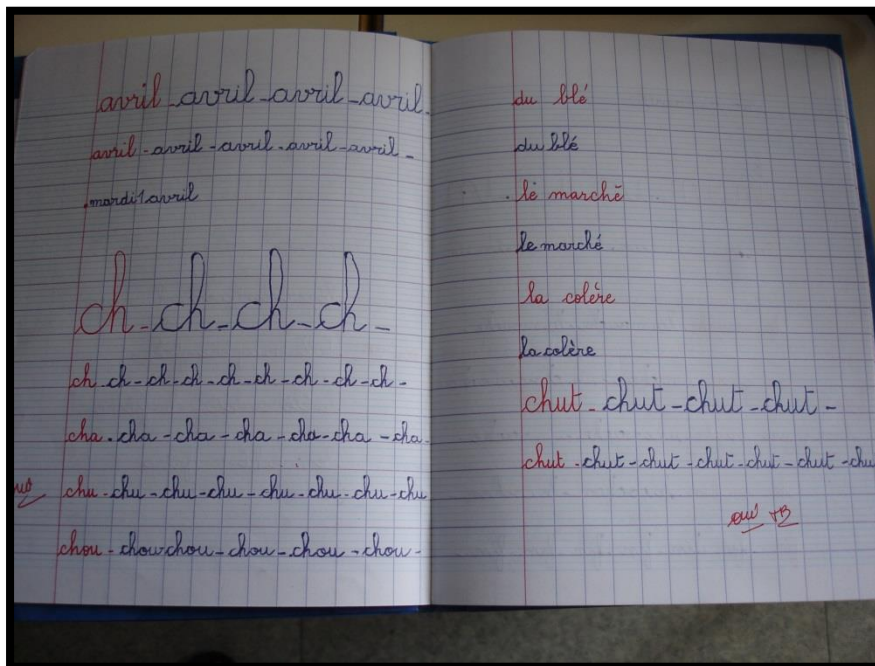 avril - avril - avril - avril -
avril - avril - avril - avril - avril -
mardi 1 avril
ch - ch - ch - ch -
ch - ch - ch - ch - ch - ch - ch - ch - ch -
cha - cha - cha - cha - cha - cha - cha -
chu - chu - chu - chu - chu - chu - chu - chu
chou - chou chou - chou - chou - chou -
du blé
du blé
le marché
le marché
la colère
la colère
chut - chut - chut - chut -
chut - chut - chut - chut - chut - chut - chu
oui TB